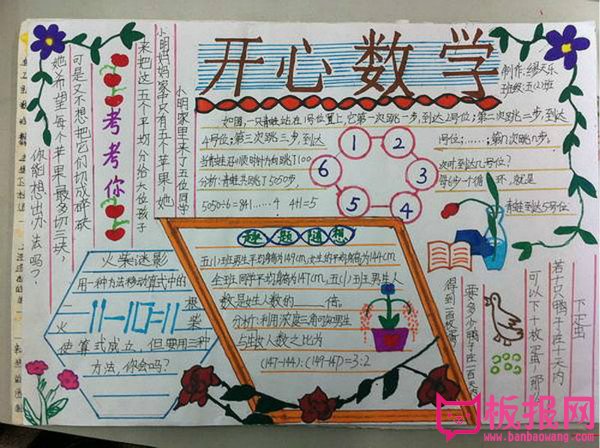 开心数学
制作:缪天乐
班级:五(2)班
如图,一只青蛙站在1号位置上,它第一次跳1步,到达2号位;第二次跳2步,到达
4号位;第三次跳三步,到达
号位;……;第n次跳n步。
当青蛙沿顺时针方向跳了100
次时到达几号位?
分析:青蛙共跳了5050步
每6步一个循环,就是
5050÷6=841……4 4+1=5
青蛙到达5号位
1
2
3
4
5
6
考考你
小明家里来了五位同学
小明妈妈家只有5个苹果,她
来把这五个平均分给六位孩子
可是又不想把它们切成碎块
她希望每个苹果最多切三块,
你能想出办法吗?
火柴谜影
用一种方法移动算式中的
一根
火柴
11-10=11
使算式成立,但要用三种
方法,你会吗?
趣题随想
五(1)班男生平均身高为149cm,女生的平均身高为144cm
全班同学平均身高为147cm,五(1)班男生人
数是女生人数的____倍。
分析:利用浓度三角可知男生
与女生人数之比为
(147-144):(149-147)=3:2
下正蛋
若十只鸭子在十天内
可以下十枚蛋,那
要多少鸭子在一百天
得到一百枚蛋
板报网
www.banbaowang.com